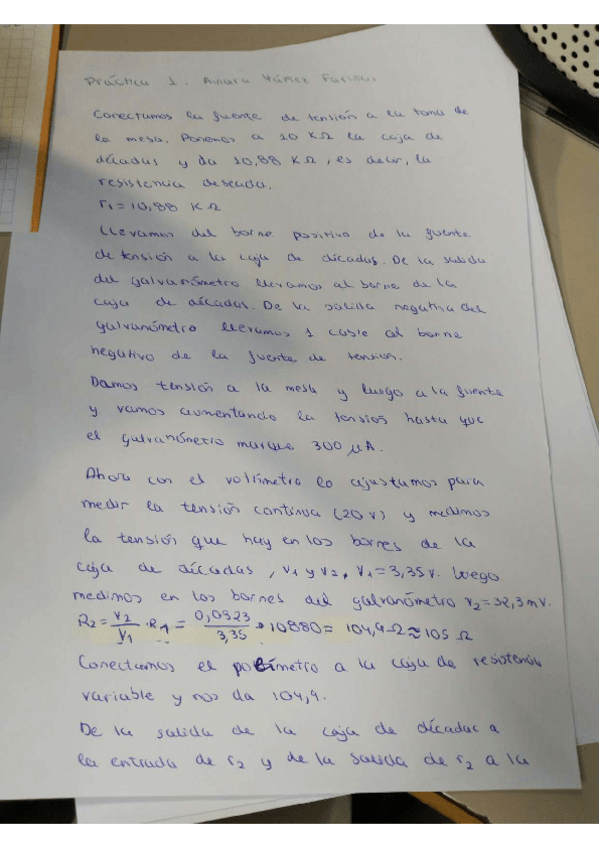 Práctica 1.
Conectamos la fuente de tensión a la toma de
la mesa. Ponemos a 10 KΩ la caja de
décadas y da 10,88 KΩ, es decir, la
resistencia deseada.
r₁ = 10,88 KΩ
Llevamos del borne positivo de la fuente
de tensión a la caja de décadas. De la salida
del galvanómetro llevamos al borne de la
caja de décadas. De la salida negativa del
galvanómetro llevamos 1 cable al borne
negativo de la fuente de tensión.
Damos tensión a la mesa y luego a la fuente
y vamos aumentando la tensión hasta que
el galvanómetro marque 300 μA.
Ahora con el voltímetro lo ajustamos para
medir la tensión continua (20 V) y medimos
la tensión que hay en los bornes de la
caja de décadas, V₁ y V₂. V₁ = 3,35 V. Luego
medimos en los bornes del galvanómetro V₂ = 32,3 mV.
R₂ = V₂/V₁ · R₁ = 0,0323/3,35 · 10880 = 104,9 Ω ≈ 105 Ω
Conectamos el polímetro a la caja de resistencia
variable y nos da 104,9.
De la salida de la caja de décadas a
la entrada de r₂ y de la salida de r₂ a la